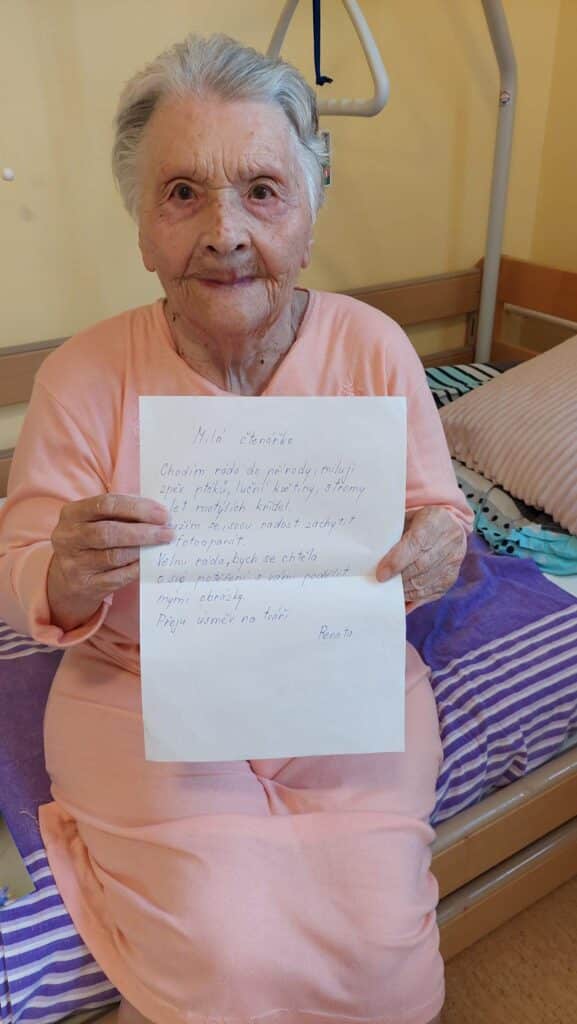 Milá čtenářko
Chodím ráda do přírody, miluji
zpěv ptáků, luční květiny, stromy
let motýlích křídel.
se svou radost zachytit
fotoaparát.
Velmi ráda, bych se chtěla
o své potěšení s vámi podělit
mými obrázky.
Přeji úsměv na tváři
Renata